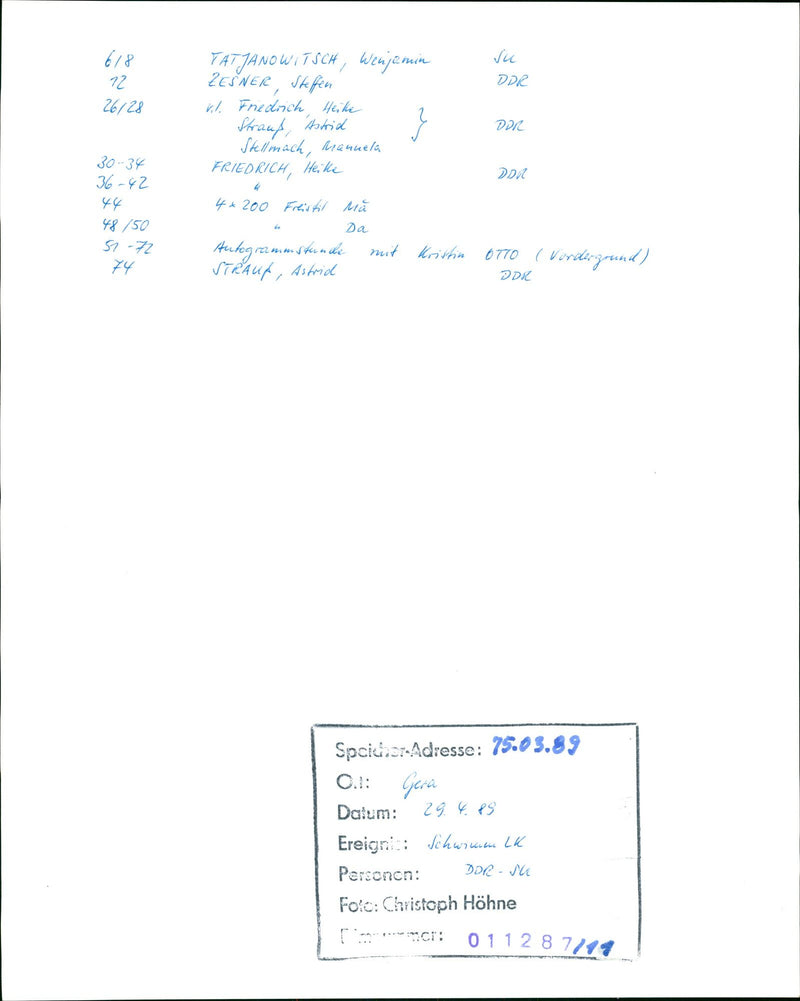 6/8 TATJANOWITSCH, Wenjamin SU
12 ZESNER, Steffen DDR
26/28 v.l. Friedrich, Heike
Strauß, Astrid } DDR
Stellmach, Manuela
30-34 FRIEDRICH, Heike DDR
36-42 "
44 4 x 200 Freistil Mä
48/50 " Da
51-72 Autogrammstunde mit Kristin OTTO (Vordergrund)
74 STRAUß, Astrid DDR
Speicher-Adresse: 75.03.89
Ort: Gera
Datum: 29.4.89
Ereignis: Schwimm LK
Personen: DDR-SU
Foto: Christoph Höhne
011287/11